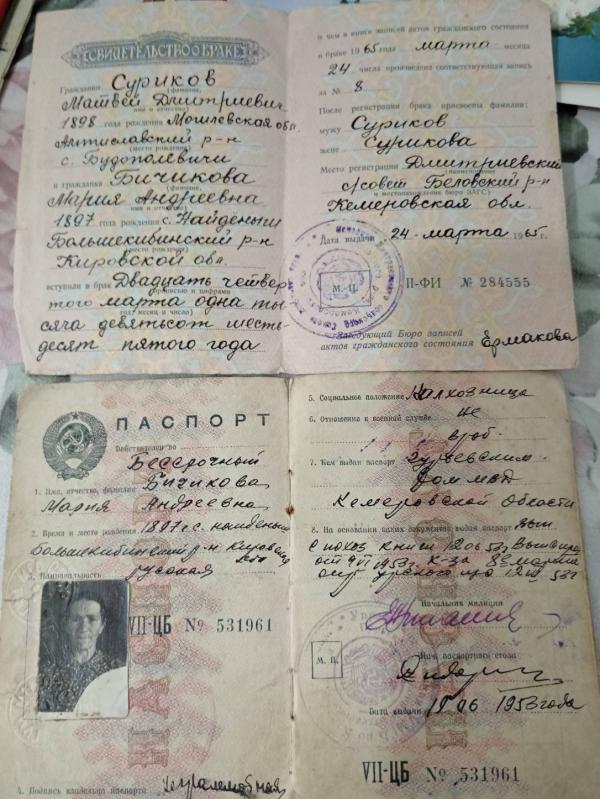 СВИДЕТЕЛЬСТВО О БРАКЕ
Гражданин Суриков
(фамилия,
Матвей Дмитриевич
имя и отчество)
1898 года рождения Могилевская обл.
Мстиславский р-н
(место рождения)
с.
и гражданка Бичикова
(фамилия,
Мария Андреевна
имя и отчество)
1897 года рождения с.
р-н
(место рождения)
Кировской обл.
вступили в брак Двадцать четвер
(прописью и цифрами
того марта одна ты
год, месяц и число)
сяча девятьсот шесть
десят пятого года
о чем в книге записей актов гражданского состояния
о браке 1965 года марта месяца
24 числа произведена соответствующая запись
за № 8
После регистрации брака присвоены фамилии:
мужу Суриков
жене Сурикова
Место регистрации Дмитриевский
(наименование
с/совет Беловский р-н
и местонахождение бюро ЗАГС)
Кемеровская обл.
Дата выдачи 24 марта 1965 г.
М.-П.
II-ФИ № 284555
Заведующий Бюро записей
актов гражданского состояния Ермакова
ПАСПОРТ
Действителен по
Бессрочный
1. Имя, отчество, фамилия Бичикова
Мария Андреевна
2. Время и место рождения 1897 г с.
р-н Кировской
3. Национальность
русская
VII-ЦБ № 531961
4. Подпись владельца паспорта неграмотная
5. Социальное положение Колхозница
6. Отношение к военной службе не
7. Кем выдан паспорт Гурьевским
Кемеровской Области
8. На основании каких документов выдан паспорт
Начальник милиции
М. П.
Нач. паспортного стола
Дата выдачи 1953 года
VII-ЦБ № 531961